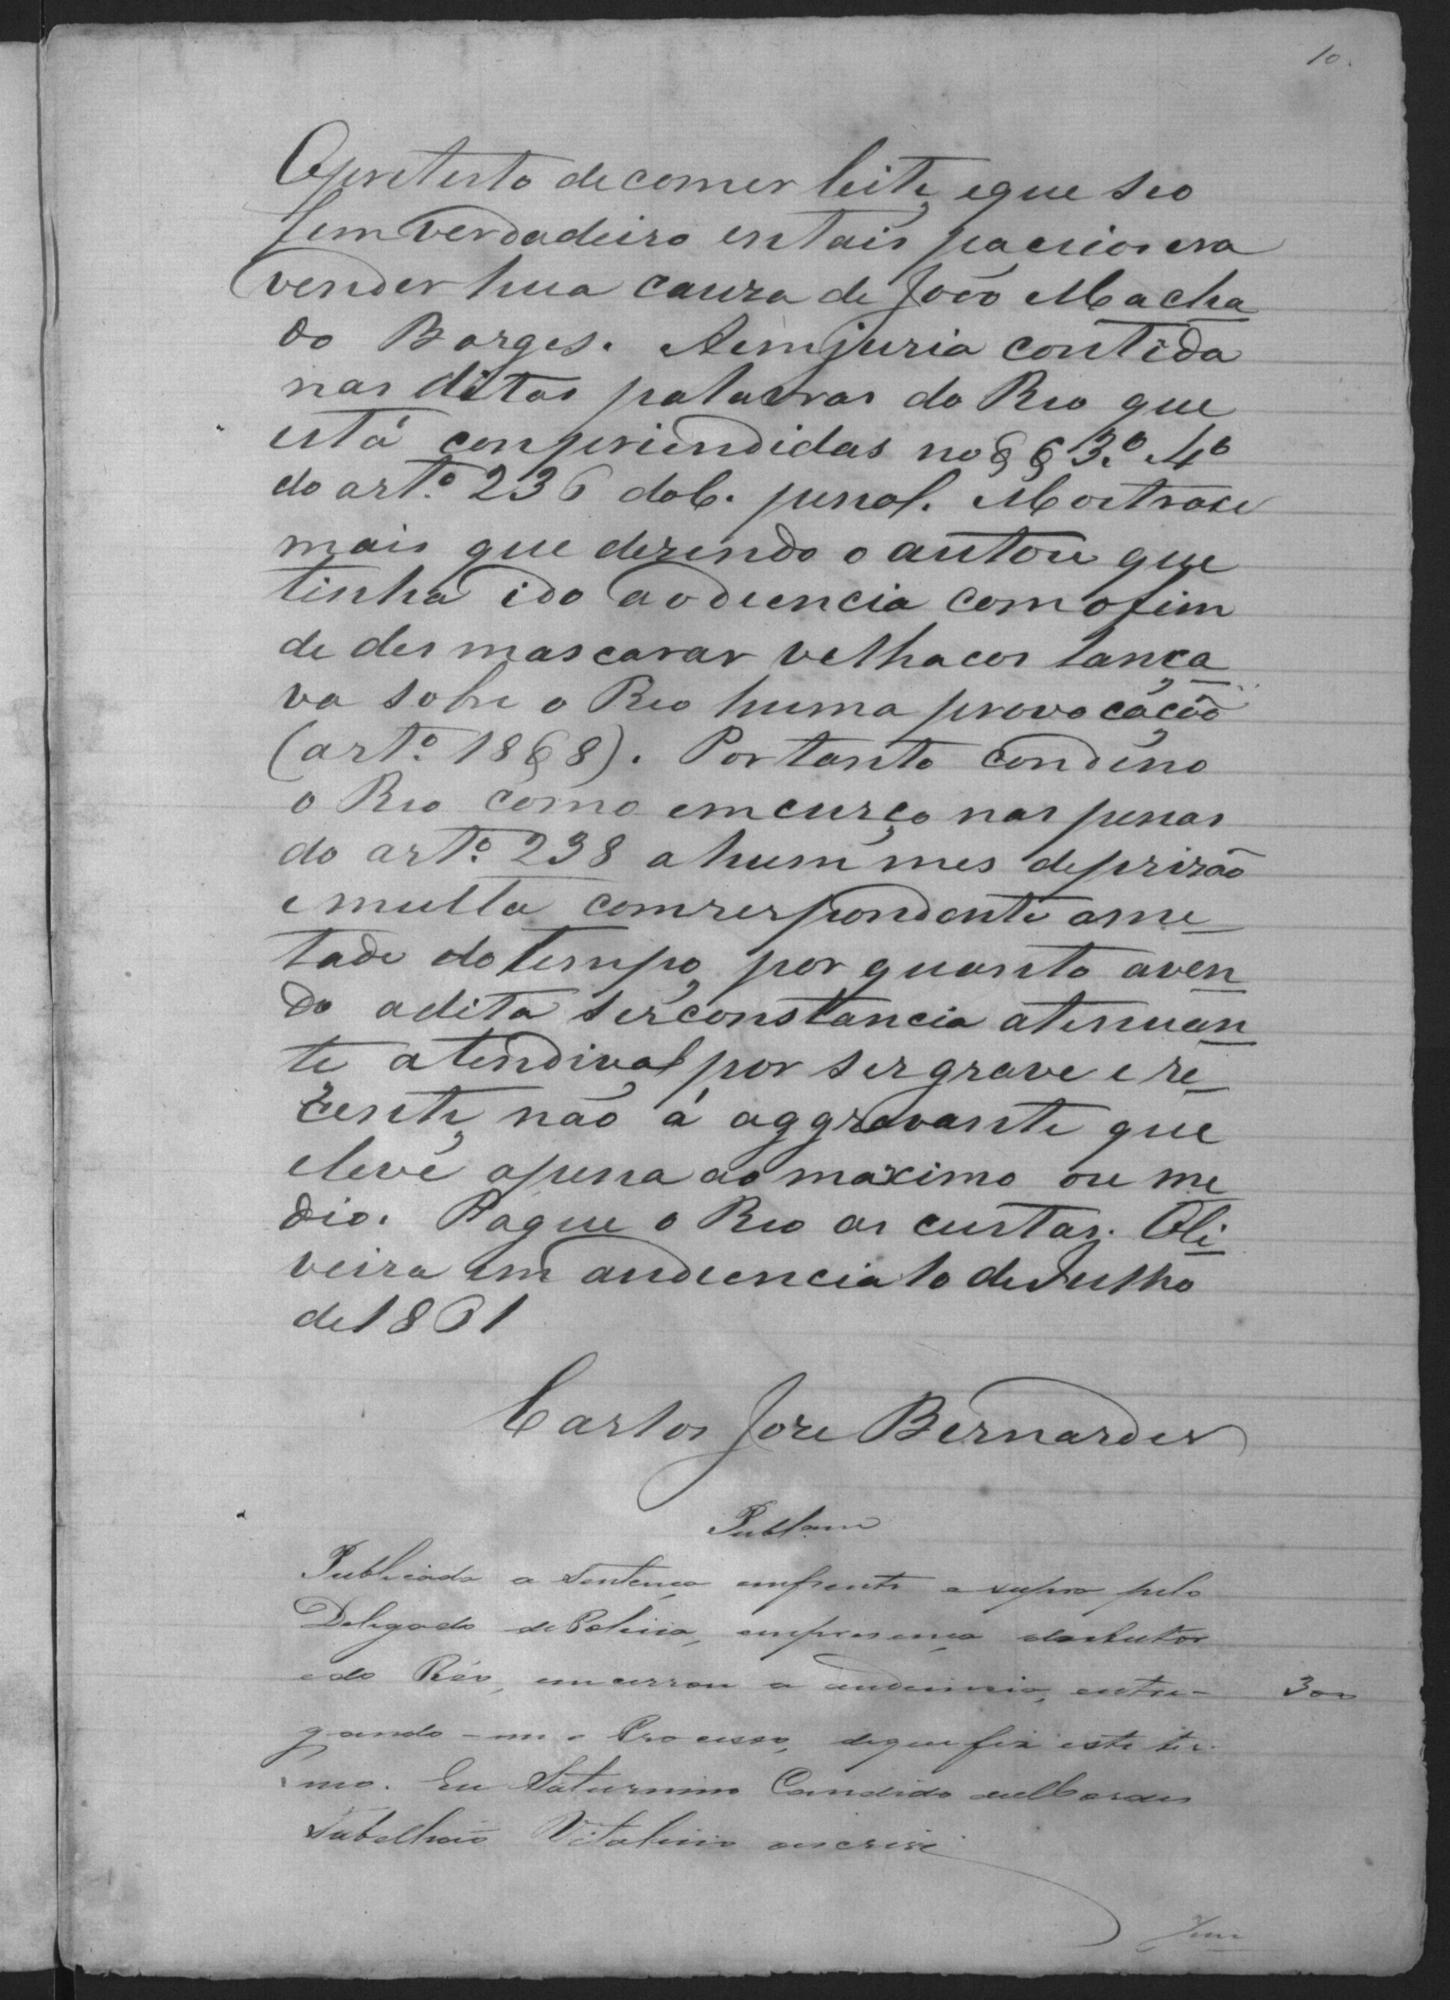 10.
Apretesto de comer leite, eque seo
fim verdadeiro entais paceios era
vender hua cauza de João Macha
do Borges. Aemjuria contida
nas ditas palavras do Reo que
está conpriendidas no §§ 3.º 4º
do art.º 236 do C. penal. Mostrase
mais que dezendo o autou que
tinha ido aodiencia com o fim
de des mascarar velhacos lança
va sobre o Reo huma provocação
(art.º 18 § 8). Portanto condeno
o Reo como emcurço nas penas
do art.º 238 a hum mes deprizão
e multa comrespondente ame
tade do tempo, por quanto aven
do adita serconstancia atenuan
te atendival por ser grave e re
cente, não á aggravante que
eleve apena ao maximo ou me
dio. Pague o Reo as custas. Oli
veira em audiencia 10 de Julho
de 1861
Carlos Joze Bernardes
Publam
Publicada a Sentença emfrente e supra pelo
Delegado de Policia, empresença do Autor
e do Réo, encerrou a audiencia, entre-
gando-me o Processo, deque fiz este ter-
mo. Eu Saturnino Candido
Tabelhaõ Vitalicio escrivi
300